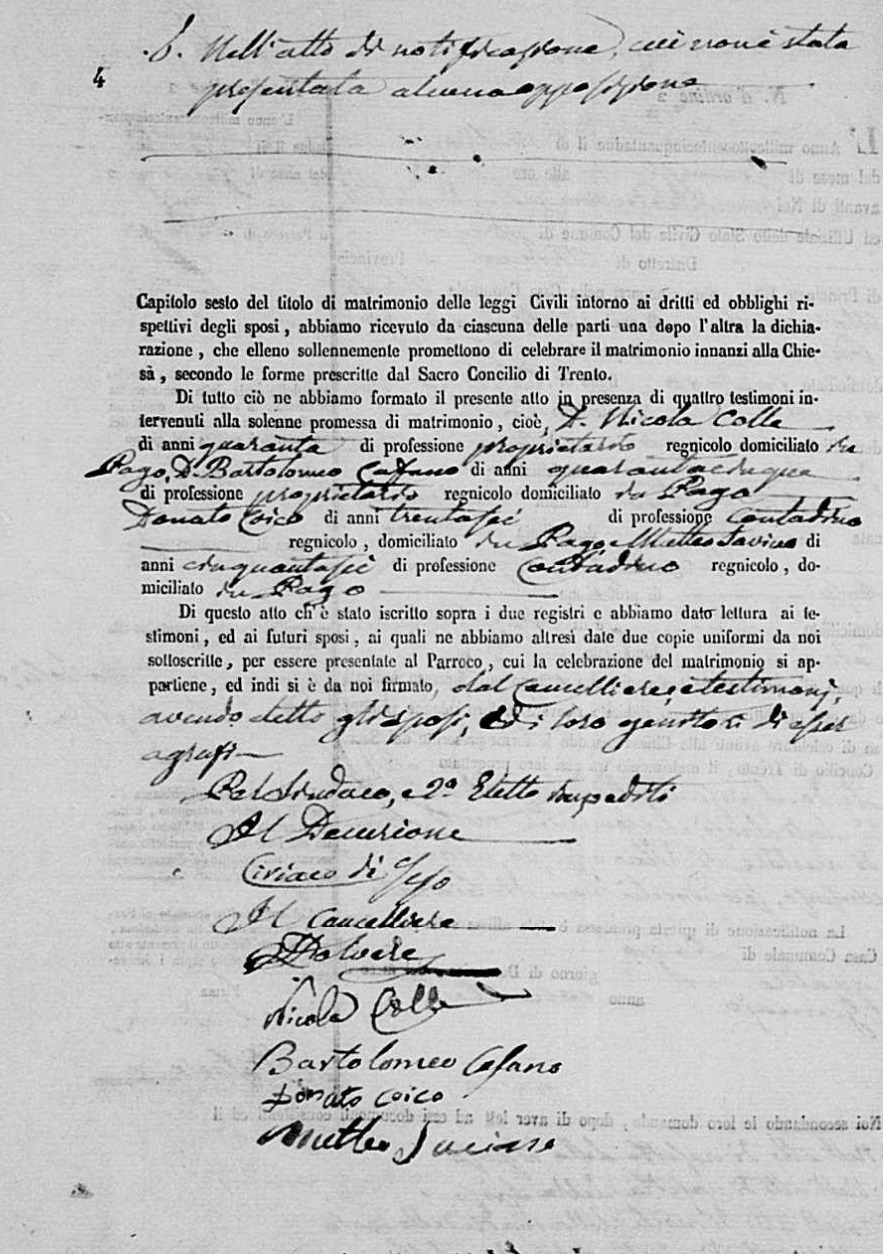 6. Nell'atto di notificazione, cui non è stata
4
presentata alcuna opposizione
Capitolo sesto del titolo di matrimonio delle leggi Civili intorno ai dritti ed obblighi ri-
spettivi degli sposi, abbiamo ricevuto da ciascuna delle parti una dopo l'altra la dichia-
razione, che elleno sollennemente promettono di celebrare il matrimonio innanzi alla Chie-
sà, secondo le forme prescritte dal Sacro Concilio di Trento.
Di tutto ciò ne abbiamo formato il presente atto in presenza di quattro testimoni in-
tervenuti alla solenne promessa di matrimonio, cioè, D. Nicola Colle
di anni quaranta di professione proprietario regnicolo domiciliato in
Pago, D. Bartolomeo Cafano di anni quarantacinque
di professione proprietario regnicolo domiciliato in Pago
Donato Coico di anni trentasei di professione contadino
regnicolo, domiciliato in Pago e Matteo di
anni cinquantasei di professione Contadino regnicolo, do-
miciliato in Pago
Di questo atto ch'è stato iscritto sopra i due registri e abbiamo dato lettura ai te-
stimoni, ed ai futuri sposi, ai quali ne abbiamo altresì date due copie uniformi da noi
sottoscritte, per essere presentate al Parroco, cui la celebrazione del matrimonio si ap-
partiene, ed indi si è da noi firmato, dal Cancelliere, e testimonj,
avendo detto gli sposi, ed i loro genitori di esser
Pel Sindaco, e 2º Eletto impediti
Il Decurione
Ciriaco di
Il Cancelliere
Nicola Colle
Bartolomeo Cafano
Donato Coico
Matteo